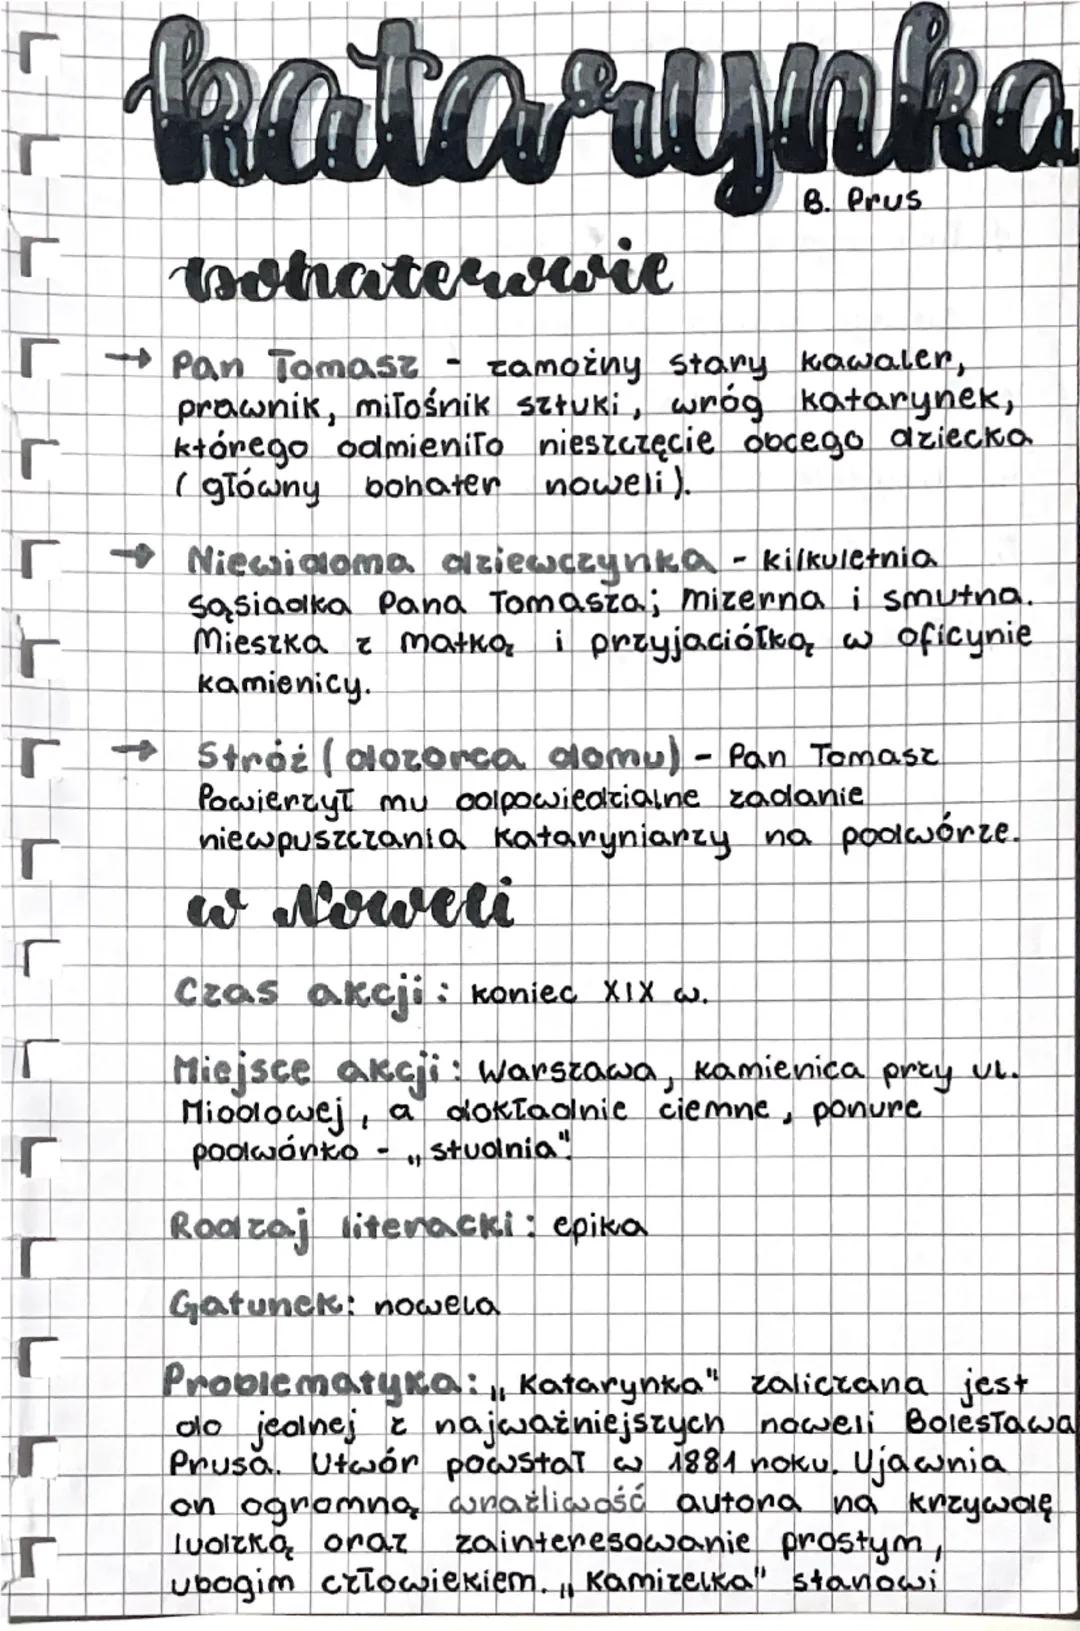 katarynka
B. Prus
bohaterowie
→ Pan Tomasz - zamożny stary kawaler,
prawnik, miłośnik sztuki, wróg katarynek,
którego odmieniło nieszczęcie obcego dziecka
(główny bohater noweli).
→ Niewidoma dziewczynka - kilkuletnia
sąsiadka Pana Tomasza; mizerna i smutna.
Mieszka z matką i przyjaciółką w oficynie
kamienicy.
→ Stróż (dozorca domu) - Pan Tomasz
Powierzył mu odpowiedzialne zadanie
niewpuszczania kataryniarzy na podwórze.
w Noweli
Czas akcji: koniec XIX w.
Miejsce akcji: Warszawa, kamienica przy ul.
Miodowej, a dokładnie ciemne, ponure
podwórko - „studnia".
Rodzaj literacki: epika
Gatunek: nowela
Problematyka: „Katarynka" zaliczana jest
do jednej z najważniejszych noweli Bolesława
Prusa. Utwór powstał w 1881 roku. Ujawnia
on ogromną wrażliwość autora na krzywdę
ludzką oraz zainteresowanie prostym,
ubogim człowiekiem. „Kamizelka" stanowi